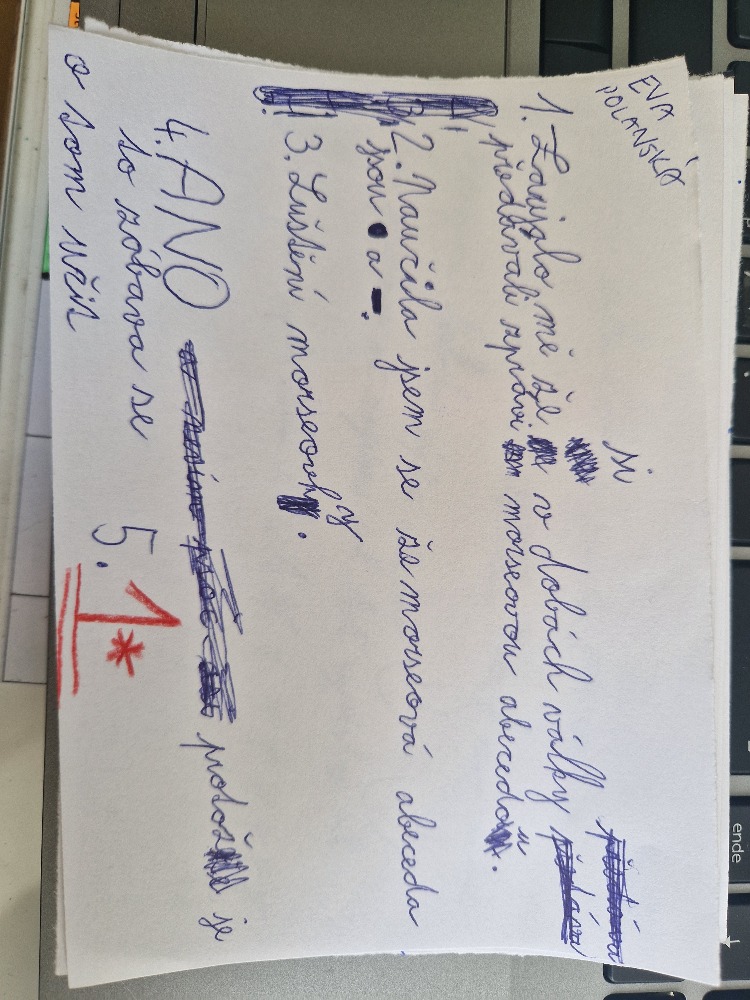 EVA
POLANSKÁ
si
1. Zaujalo mě že v dobách války
předávali zprávi morseovou abecedou.
2. Naučila jsem se že morseová abeceda
jsou • a -.
3. Luštění morseovky.
4. ANO protože je
to zábava se
o tom učit
5. 1*
ende